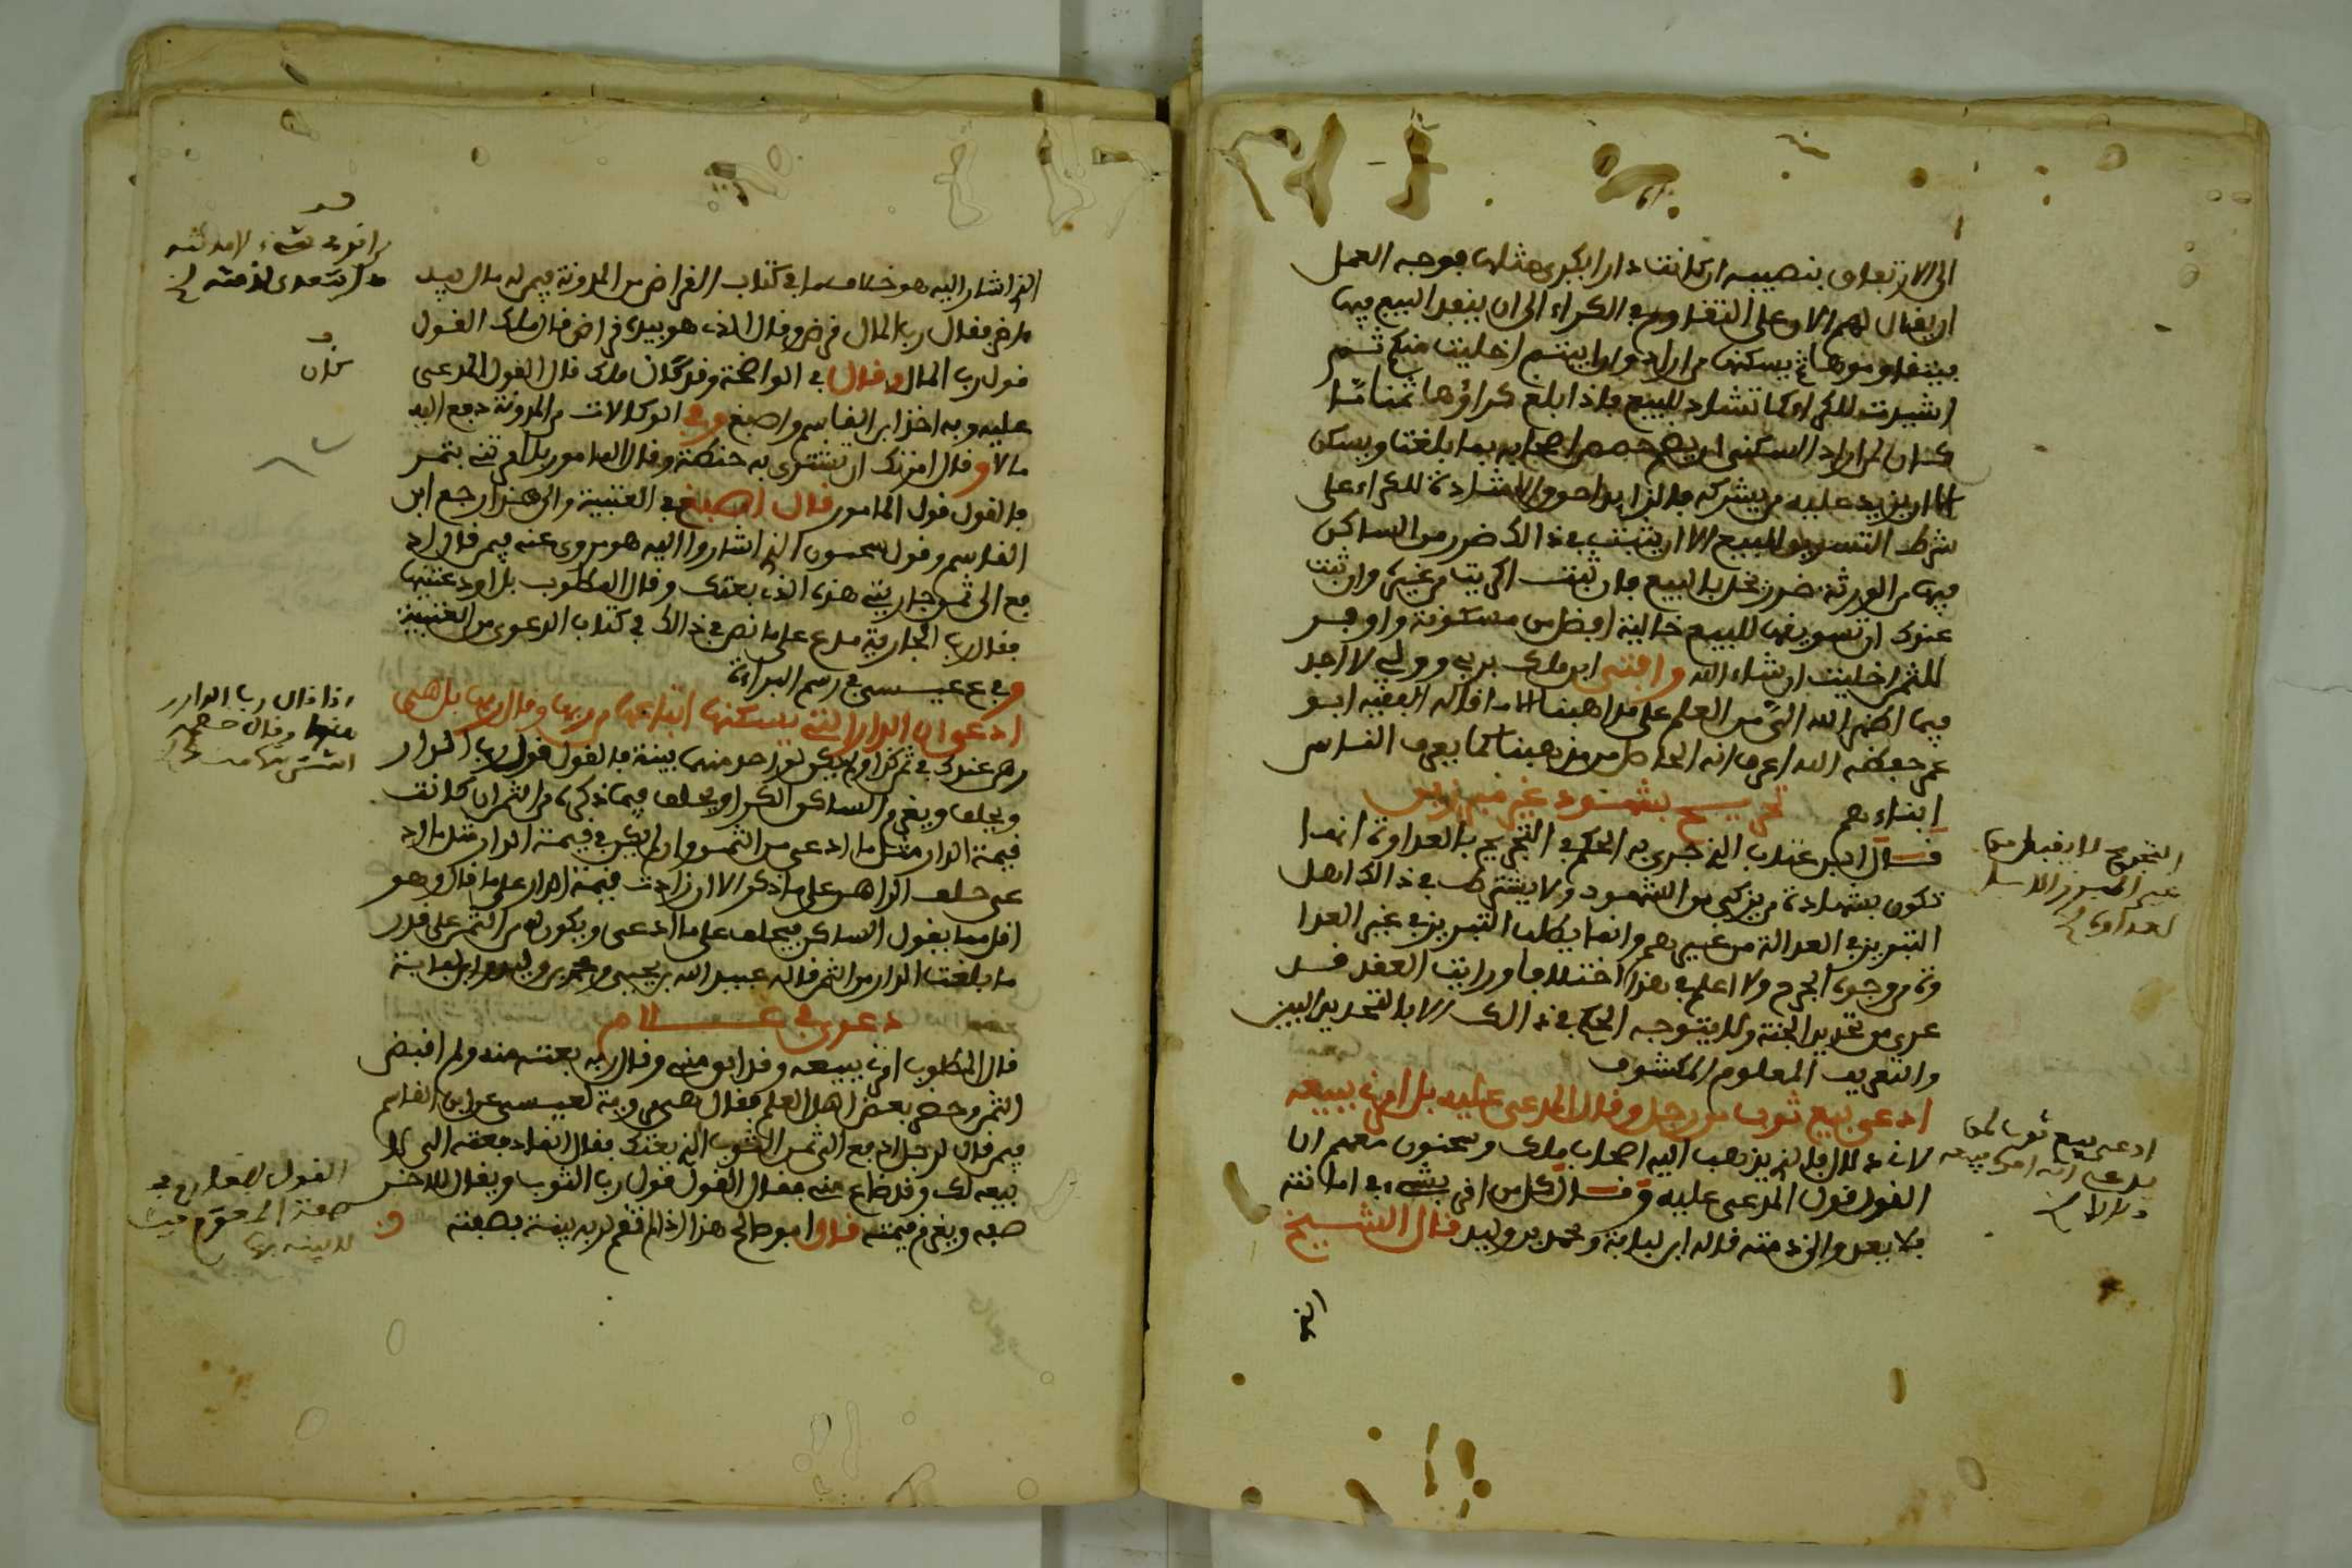 الى الارتفاق بنصيبه ان كانت دارا يكرى مثلها فوجه العمل
ان يقال لهم الان على التقاوم في الكراء الى ان ينفد البيع فيها
فيتقاومونها ثم يسكنها من اراد وان ابيتم اخليت منكم ثم
اشيدت للكراء كما تشاد للبيع فاذا بلغ كراؤها ثمنا ما
كان لمن اراد السكنى ان يضم حصص اصحابه بما بلغت ويسكن
الا ان يزيد عليه من يشركه فالزايد احق والاشادة للكراء على
شرط التسويق للبيع الا ان يثبت في ذالك ضرر من الساكن
فيها من الورثة ضرر يخل بالبيع فان ثبت اكريت من غيره وان ثبت
عندك ان تسويقها للبيع خالية افضل من مسكونة واوفر
للثمن اخليت ان شاء الله وافتى ابن مالك بربي وولي لا احد
فيما اظهر الله الي من العلم على مذاهبنا الا ما قاله الفقيه ابو
عمر حفظه الله اعرف انه الحاصل من مذهبنا كما يعرف الناس
ابناءهم تجريح بشهود غير مبرزين
قال ابن عتاب الذي جرى به الحكم في التجريح بالعداوة انما
تكون بشهادة من يزكى من الشهود ولا يشترط في ذالك اهل
التبريز في العدالة من غيرهم وانما يطلب التبريز في غير العدا
وة من وجوه الجرح ولا اعلم في هذا اختلافا ورايت العقد قد
عري من تحديد الجنة ولا يتوجه الحكم في ذالك الا بالتحديد البين
والتعريف المعلوم المكشوف
ادعى بيع ثوب من رجل وقال المدعى عليه بل امرني ببيعه
لابن دلال فالذي يذهب اليه اصحاب مالك وسحنون معهم ان
القول قول المدعى عليه وقال كل من اقر بشيء في امانته
فلا يعدو الى ذمته قاله ابن لبابة ومحمد بن وليد قال الشيخ
الذي
التجريح لا يقبل من
غير المبرز الا بـ
لعداوة
ادعى بيع ثوب لمن
يدعي انه امره ببيعه
الذي اشار اليه هو خلاف ما في كتاب القراض من المدونة فيمن له مال بيد
مقرض فقال رب المال قرض وقال الذي هو بيده قراض قال مالك القول
قول رب المال وقال في الواضحة وقد كان مالك قال القول المدعى
عليه وبه اخذ ابن القاسم واصبغ وفي الوكالات من المدونة دفع اليه
مالا وقال امرتك ان تشتري به حنطة وقال المامور بل امرتني بتمر
فالقول قول المامور قال اصبغ في العتبية والى هذا رجع ابن
القاسم وقول سحنون الذي اشاروا اليه هو مروي عنه فيمن قال اد
فع الي ثمن جاريتي هذه الذي بعتك وقال المطلوب بل اودعتنيها
فقال رب الجارية مدع على ما نص في ذالك في كتاب الدعوى من العتبية
وفي ع عيسى في رسم البراءة
ادعى ان الدار التي يسكنها ابتاعها من ربها وقال ربها بل هي
رهن عندك في ثمن كذا ولم يكن لواحد منهما بينة فالقول قول رب الدار
ويحلف ويغرم الساكن الكراء ويحلف فيما ذكره من الثمن ان كانت
قيمة الدار مثل ما ادعى من الثمن وان لم يكن في قيمة الدار مثل ما اد
عى حلف الراهن على ما ذكر الا ان زادت قيمة الدار على ما ذكر وهو
اقل مما يقول الساكن فيحلف على ما ادعى ويكون له من الثمن على قدر
ما بلغت الدار من الثمن قاله عبيد الله بن يحيى ومحمد بن وليد وابن لبابة
دعوى في غلام
قال المطلوب امرني ببيعه وقد ابق مني وقال ربه بعته منه ولم اقبض
الثمن وحضر بعض اهل العلم فقال هي رواية لعيسى عن ابن القاسم
فيمن قال لرجل ادفع الي ثمن الثوب الذي بعتك فقال انما دفعته الي لا
بيعه لك وقد ضاع منه فقال القول قول رب الثوب ويقال للاخر
صفه ويغرم قيمته قال ابو صالح هذا اذا لم تقم لربه بينة بصفته
من اقر في شيء لامانته
لا يتعدى لذمته
كان
اذا قال رب الدار
وقال خصمه
اشتريتها منك
القول لصاحب
صفة المدفوع حيث
لا بينة بها